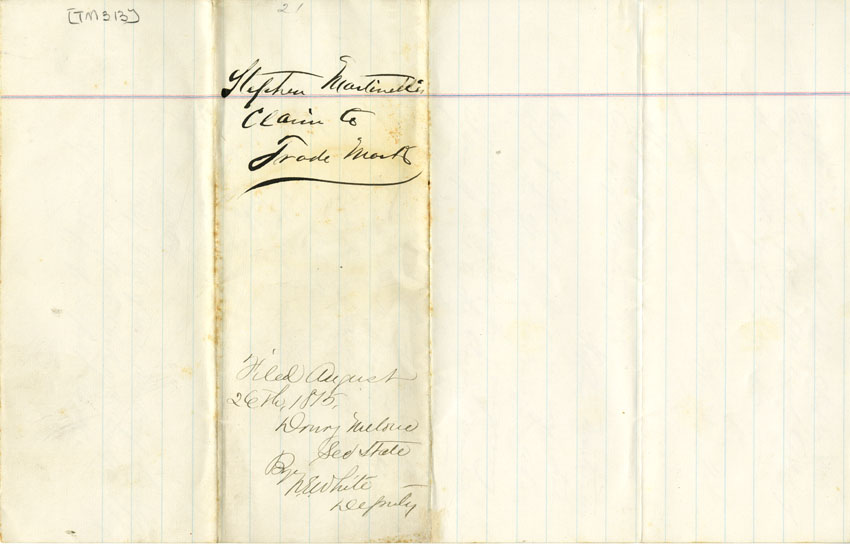 [TM 313]
21
Stephen Martinelli's
Claim to
Trade Mark
Filed August
26th, 1875,
Drury Melone
Sec State
By
White
Deputy